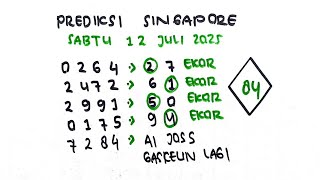 PREDIKSI SINGAPORE
SABTU 12 JULI 2025
0264 → 27 EKOR
2472 → 61 EKOR
2991 → 50 EKOR
0175 → 94 EKOR
7284 → AI JOSS
GASKEUN LAGI
04